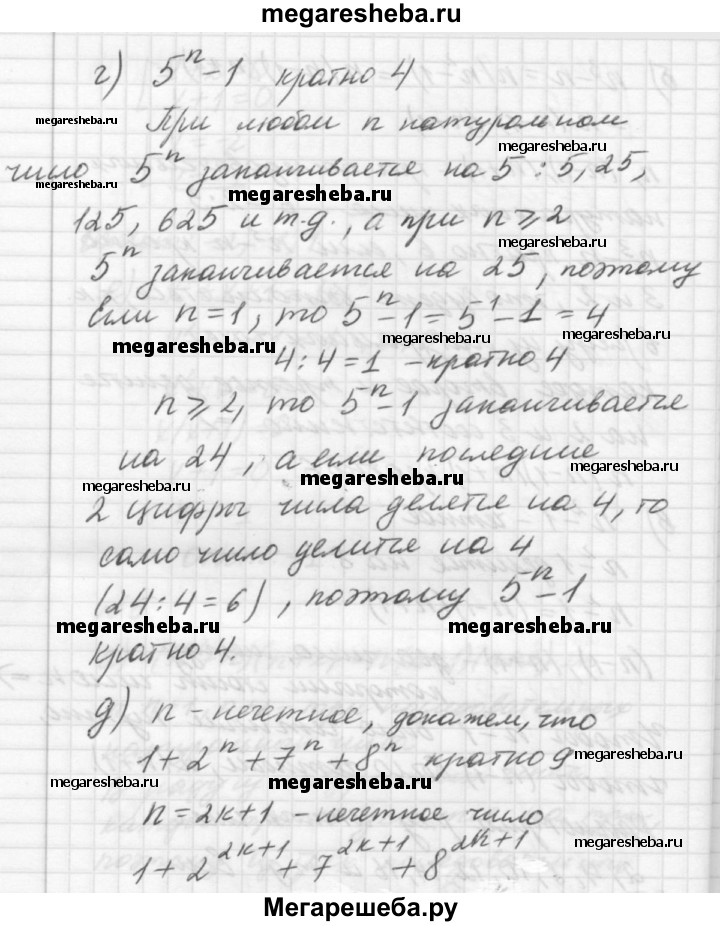 megaresheba.ru
г) 5ⁿ-1 кратно 4
megaresheba.ru При любом n натуральном
megaresheba.ru
число 5ⁿ заканчивается на 5 : 5, 25,
megaresheba.ru megaresheba.ru
125, 625 и т.д., а при n ⩾ 2
megaresheba.ru
5ⁿ заканчивается на 25, поэтому
Если n=1, то 5ⁿ-1=5¹-1=4
megaresheba.ru megaresheba.ru megaresheba.ru
4:4=1 -кратно 4
n ⩾ 2, то 5ⁿ-1 заканчивается
на 24, а если последние
megaresheba.ru megaresheba.ru megaresheba.ru
2 цифры числа делятся на 4, то
само число делится на 4
(24:4=6), поэтому 5ⁿ-1
megaresheba.ru megaresheba.ru
кратно 4.
д) n - нечетное, докажем, что
1+2ⁿ+7ⁿ+8ⁿ кратно 9
megaresheba.ru
megaresheba.ru megaresheba.ru
n=2k+1 - нечетное число
megaresheba.ru
1+2²ᵏ⁺¹+7²ᵏ⁺¹+8²ᵏ⁺¹
Мегарешеба.ру